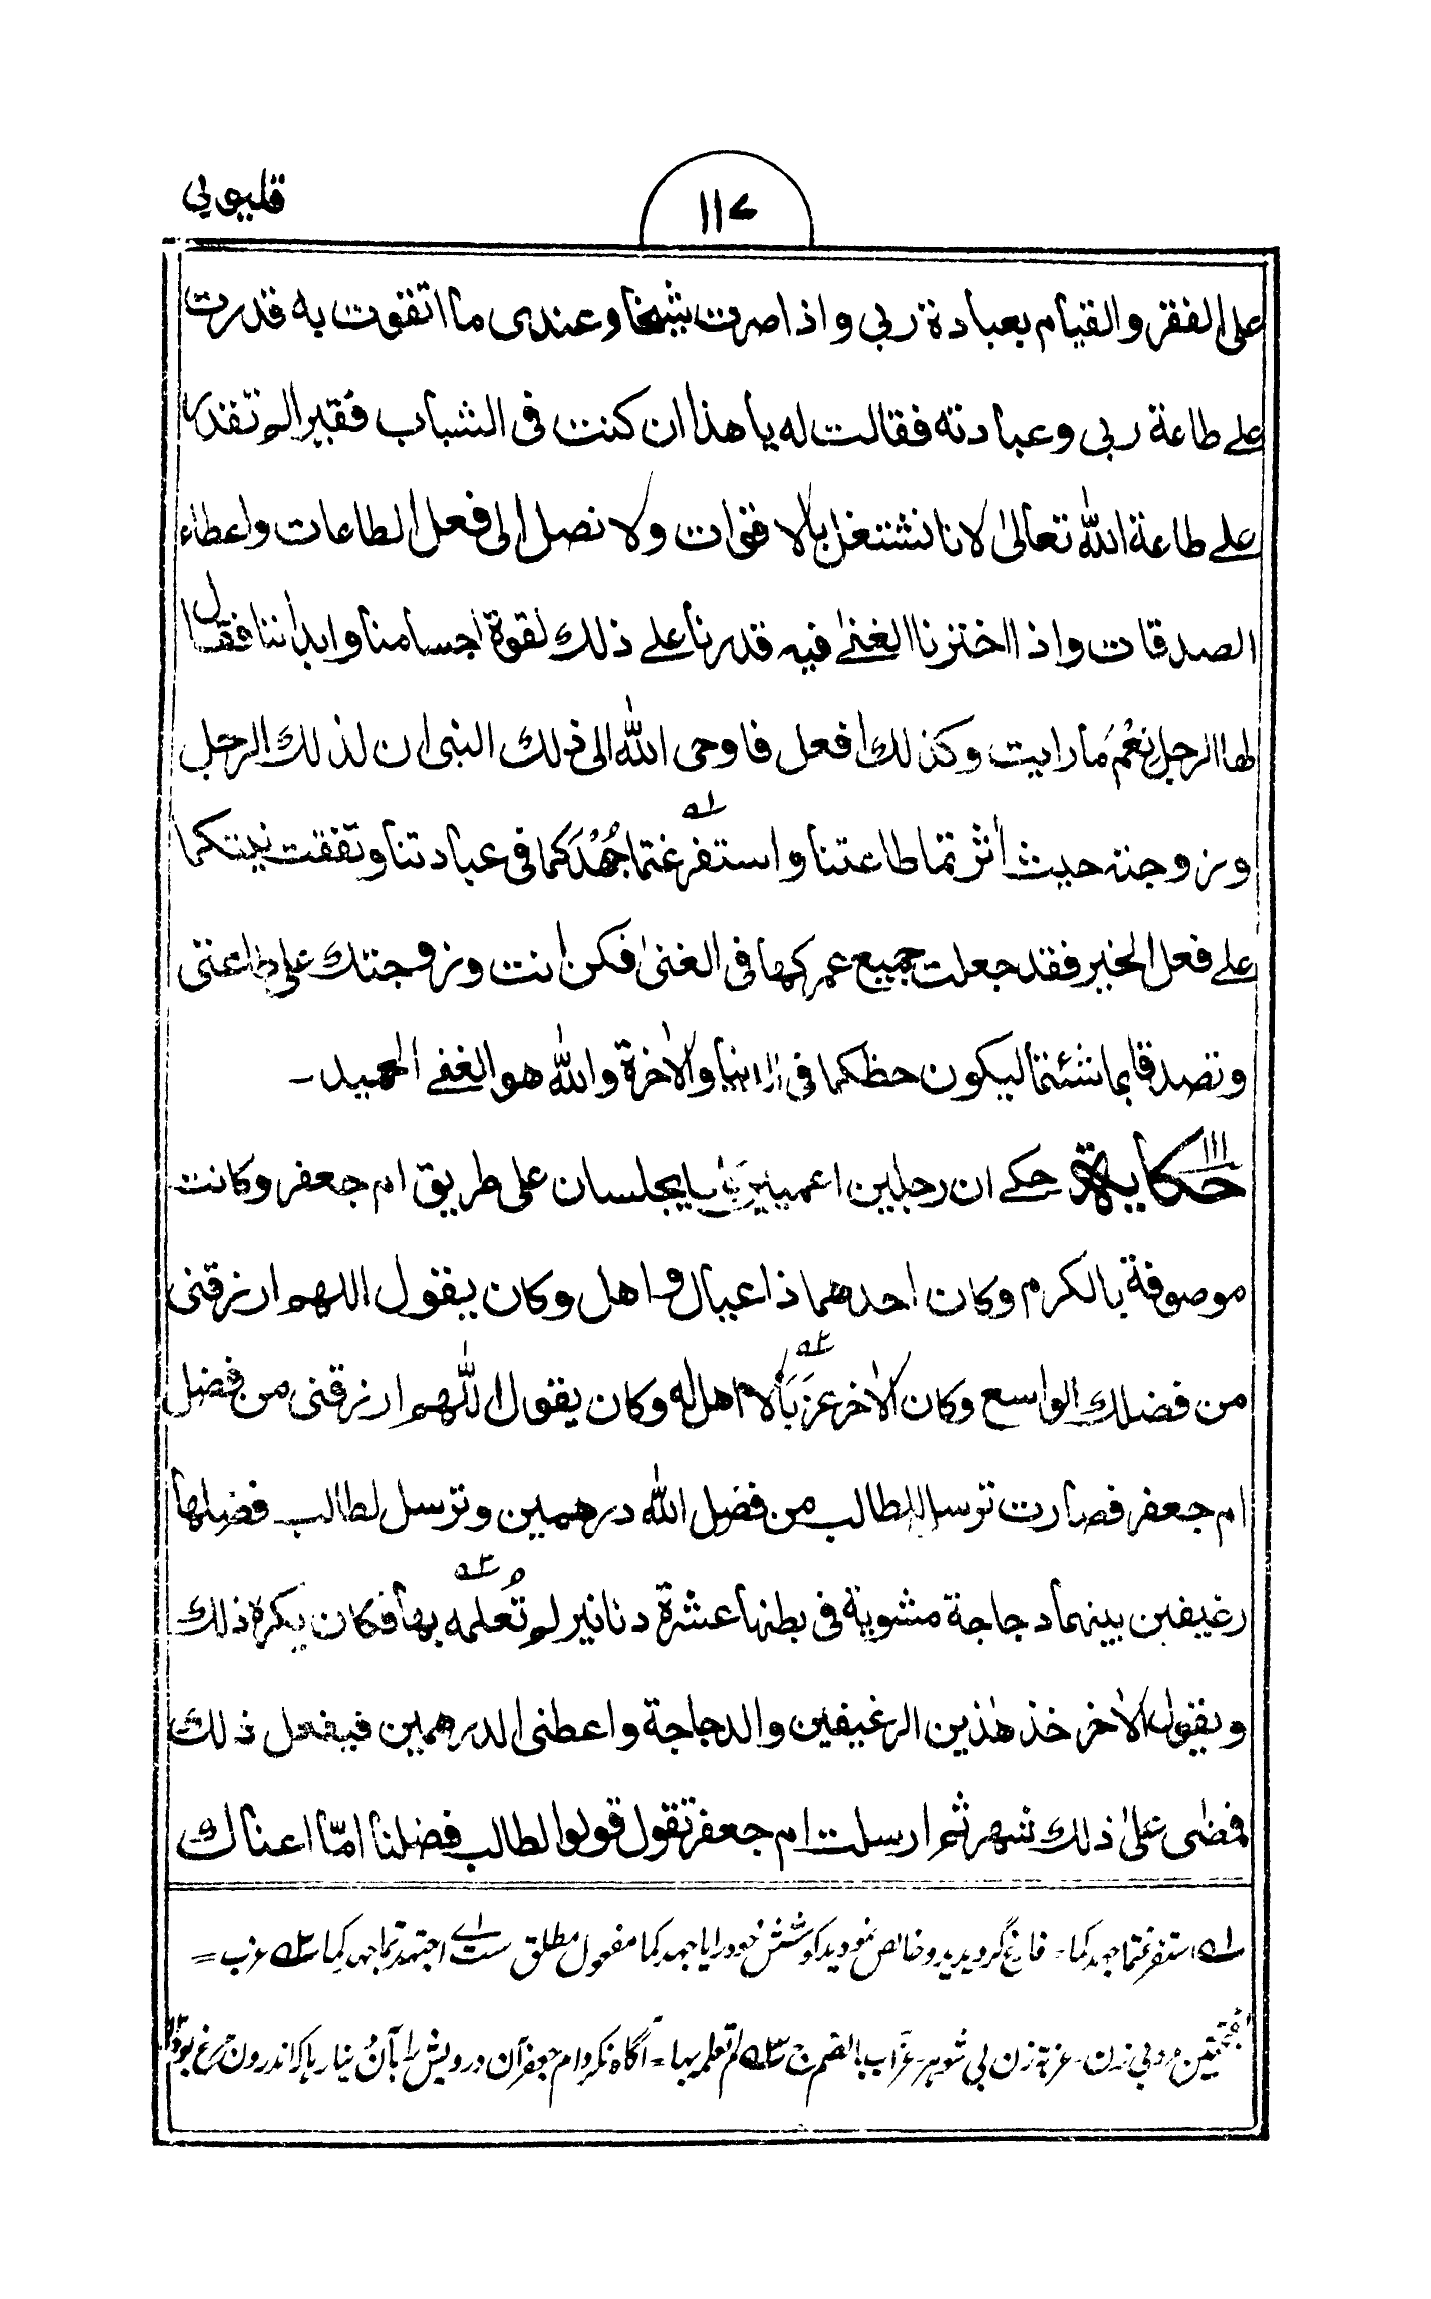 قليوبي
١١٧
على الفقر والقيام بعبادة ربي واذا صرت شيخا وعندى ما اتقوت به قدرت
على طاعة ربي وعبادته فقالت له يا هذا ان كنت فى الشباب فقيرا لم تقدر
على طاعة الله تعالىٰ لاننا نشتغل بالاقوات ولا نصل الى فعل الطاعات واعطاء
الصدقات واذا اخترنا الغنىٰ فيه قدرنا على ذلك لقوة اجسامنا وابداننا فقال
لها الرجل نِعْمَ ما رايت وكذلك افعل فاوحى الله الى ذلك النبى ان لذلك الرجل
وزوجته حيث اثرتما طاعتنا واستفرغتما جُهْدَكما فى عبادتنا وتفقت نيتكما
على فعل الخير فقد جعلت جميع عمركما فى الغنىٰ فكن انت وزوجتك على طاعتى
وتصدقا بما شئتما ليكون حظكما فى الدنيا والاٰخرة والله هو الغنى الحميد۔
حكاية ١١١ حكى ان رجلين اعميين يجلسان على طريق ام جعفر وكانت
موصوفة بالكرم وكان احدهما ذا عيال واهل وكان يقول اللهم ارزقنى
من فضلك الواسع وكان الاٰخر عَزَبًا لا ام اهل له وكان يقول اللّٰهم ارزقنى من فضل
ام جعفر فصارت ترسل لطالب من فضل الله درهمين وترسل لطالب فضلها
رغيفين بينهما دجاجة مشوية فى بطنها عشرة دنانير لم تُعلمه بها فكان يكره ذلك
ويقول الاٰخر خذ هٰذين الرغيفين والدجاجة واعطنى الدرهمين فيفعل ذلك
فمضى علىٰ ذلك شهر ثم ارسلت ام جعفر تقول قولوا لطالب فضلنا امّا اغناك
١ه استفرغتما جهدکما۔ فارغ گردیدید وخالص نمودید کوشش خود را یا جهدکما مفعول مطلق ست اے اجتهدتما جهدکما ٢ه عزب =
بفتحتین مرد بی زن۔ عزبة زن بی شوہر۔ عزّاب بالضم ج ٣ه لم تعلمہ بہا۔ آگاہ نکرد ام جعفر آن درویش را بآن دینارہا کہ اندرون مرغ بود